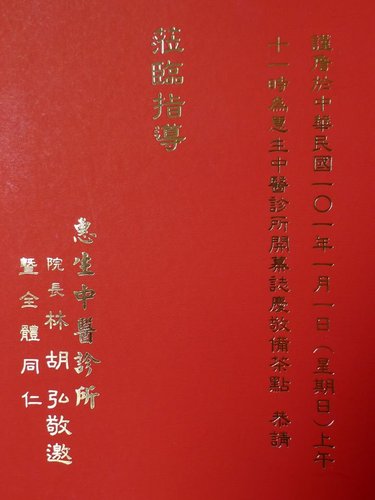 謹詹於中華民國一０一年一月一日（星期日）上午
十一時為惠生中醫診所開幕誌慶敬備茶點 恭請
蒞臨指導
惠生中醫診所
院長 林胡弘敬邀
暨全體同仁